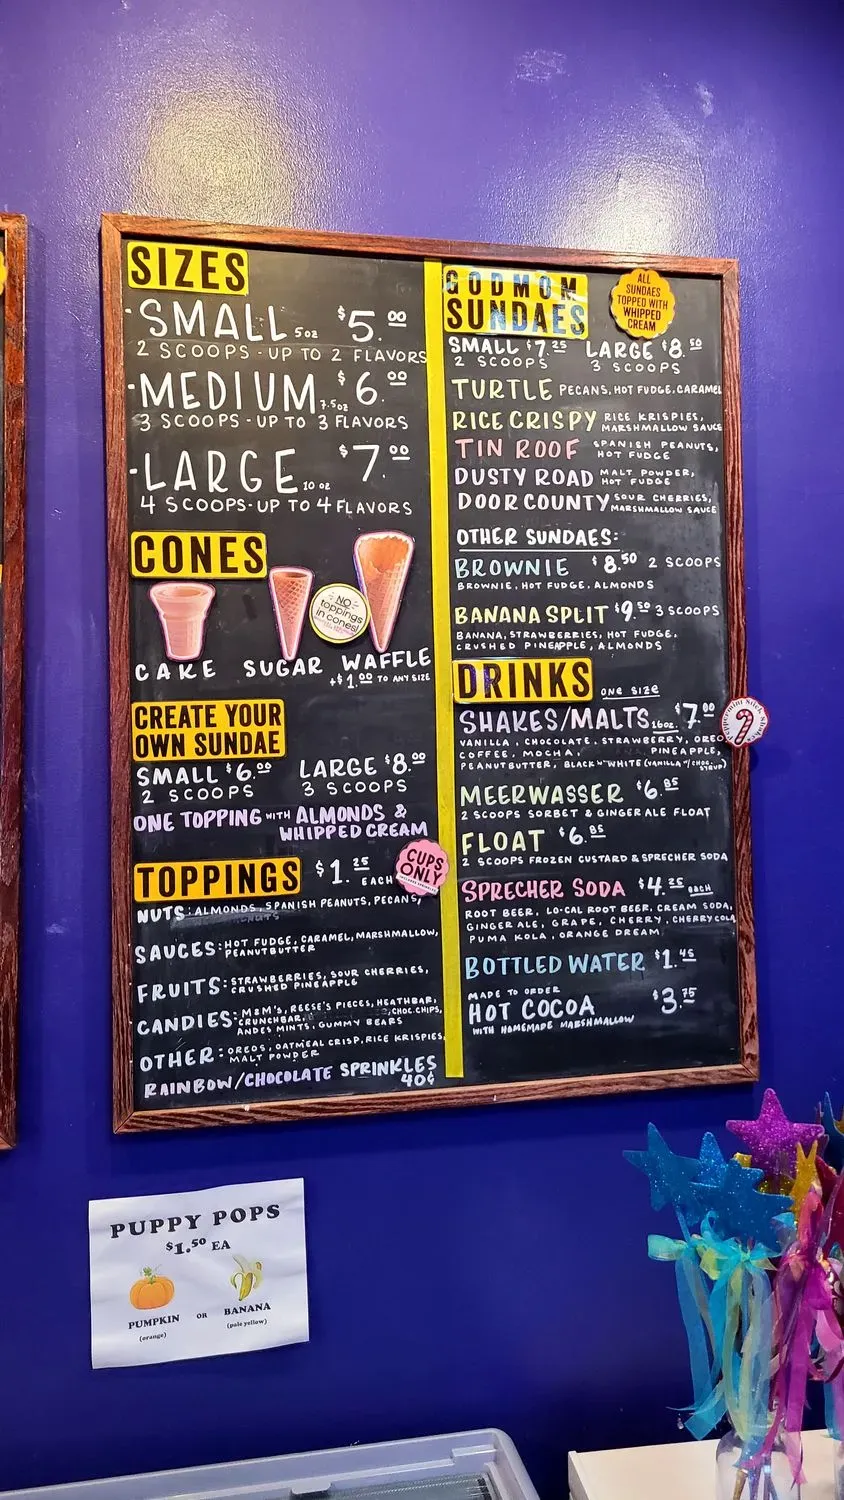 SIZES
·SMALL 5oz $5.00
2 SCOOPS - UP TO 2 FLAVORS
·MEDIUM 7.5oz $6.00
3 SCOOPS - UP TO 3 FLAVORS
·LARGE 10oz $7.00
4 SCOOPS - UP TO 4 FLAVORS
CONES
NO
toppings
in cones!
CAKE SUGAR WAFFLE
+$1.00 TO ANY SIZE
CREATE YOUR
OWN SUNDAE
SMALL $6.00 LARGE $8.00
2 SCOOPS 3 SCOOPS
ONE TOPPING WITH ALMONDS &
WHIPPED CREAM
TOPPINGS $1.25 EACH
CUPS
ONLY
NUTS: ALMONDS, SPANISH PEANUTS, PECANS,
SAUCES: HOT FUDGE, CARAMEL, MARSHMALLOW,
PEANUTBUTTER
FRUITS: STRAWBERRIES, SOUR CHERRIES,
CRUSHED PINEAPPLE
CANDIES: M&M'S, REESE'S PIECES, HEATHBAR,
CRUNCHBAR, CHOC.CHIPS,
ANDES MINTS, GUMMY BEARS
OTHER: OREOS, OATMEAL CRISP, RICE KRISPIES,
MALT POWDER
RAINBOW/CHOCOLATE SPRINKLES
40¢
GODMOM
SUNDAES
ALL
SUNDAES
TOPPED WITH
WHIPPED
CREAM
SMALL $7.25 LARGE $8.50
2 SCOOPS 3 SCOOPS
TURTLE PECANS, HOT FUDGE, CARAMEL
RICE CRISPY RICE KRISPIES,
MARSHMALLOW SAUCE
TIN ROOF SPANISH PEANUTS,
HOT FUDGE
DUSTY ROAD MALT POWDER,
HOT FUDGE
DOOR COUNTY SOUR CHERRIES,
MARSHMALLOW SAUCE
OTHER SUNDAES:
BROWNIE $8.50 2 SCOOPS
BROWNIE, HOT FUDGE, ALMONDS
BANANA SPLIT $9.50 3 SCOOPS
BANANA, STRAWBERRIES, HOT FUDGE,
CRUSHED PINEAPPLE, ALMONDS
DRINKS ONE SIZE
SHAKES/MALTS 16oz. $7.00
Peppermint Stick Shake
VANILLA, CHOCOLATE, STRAWBERRY, OREO
COFFEE, MOCHA, PINEAPPLE,
PEANUTBUTTER, BLACK "N" WHITE (VANILLA W/CHOC. SYRUP)
MEERWASSER $6.85
2 SCOOPS SORBET & GINGERALE FLOAT
FLOAT $6.85
2 SCOOPS FROZEN CUSTARD & SPRECHER SODA
SPRECHER SODA $4.25 EACH
ROOT BEER, LO-CAL ROOT BEER, CREAM SODA,
GINGER ALE, GRAPE, CHERRY, CHERRY COLA
PUMA KOLA, ORANGE DREAM
BOTTLED WATER $1.45
MADE TO ORDER
HOT COCOA $3.75
WITH HOMEMADE MARSHMALLOW
PUPPY POPS
$1.50 EA
PUMPKIN OR BANANA
(orange) (pale yellow)